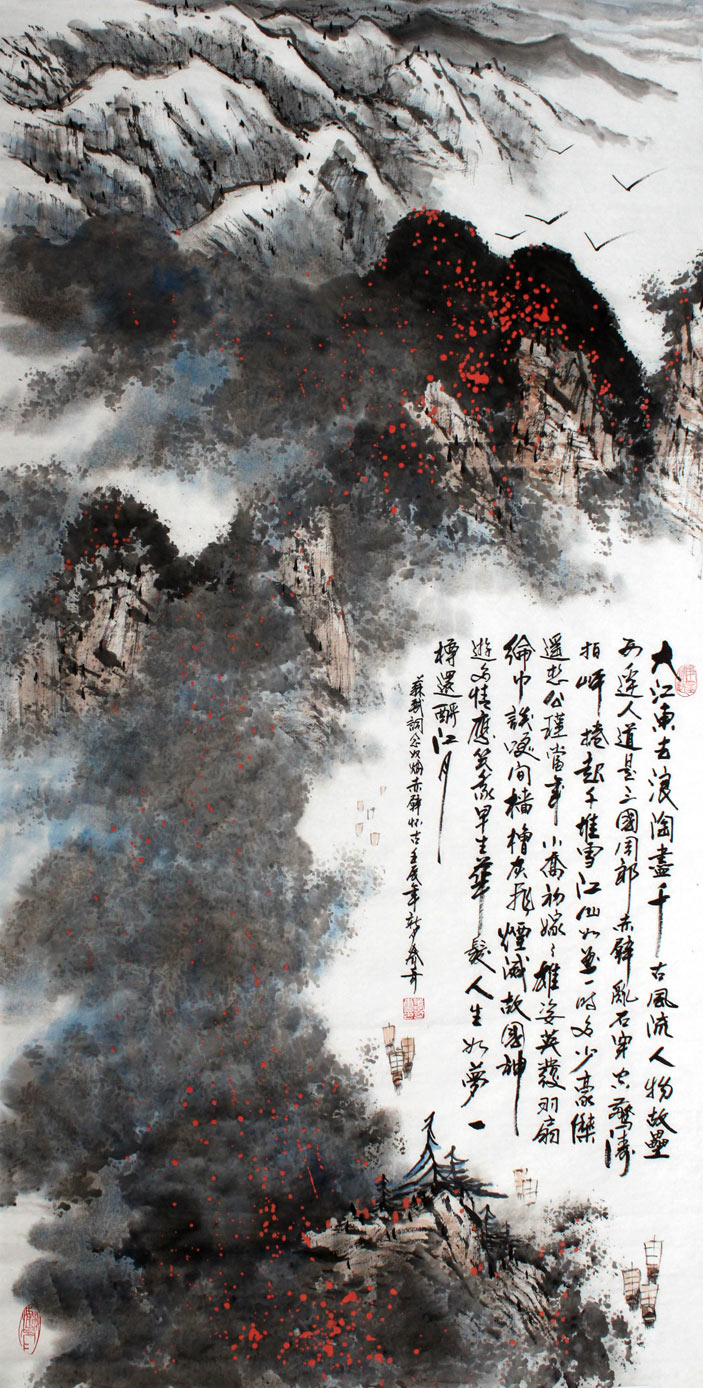 大江東去浪淘盡千古風流人物故壘
西邊人道是三國周郎赤壁亂石穿空驚濤
拍岸捲起千堆雪江山如畫一時多少豪傑
遙想公瑾當年小喬初嫁了雄姿英發羽扇
綸巾談笑間檣櫓灰飛煙滅故國神
遊多情應笑我早生華髮人生如夢一
樽還酹江月
蘇軾詞念奴嬌赤壁懷古壬辰年